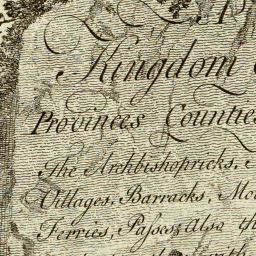 Kingdom
Provinces Counties
The Archbishopricks,
Villages, Barracks,
Ferries, Passes; Also
with